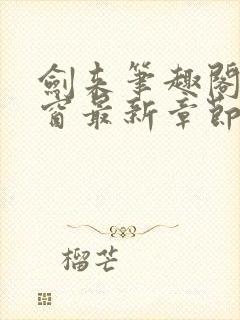 劍來筆趣閣
窗最新章節
榴芒